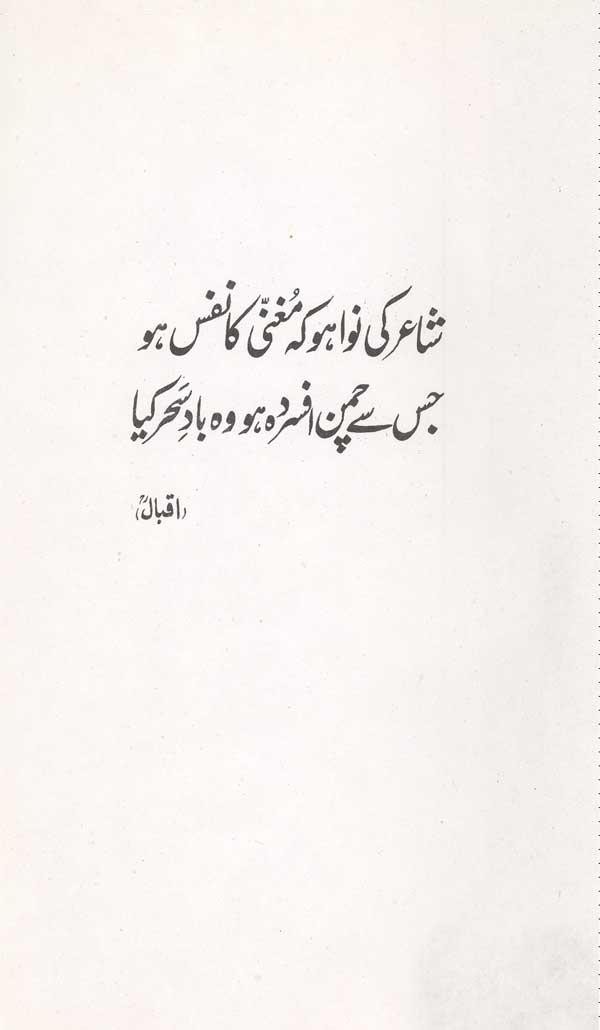 شاعر کی نوا ہو کہ مُغنّی کا نفس ہو
جس سے چمن افسردہ ہو وہ بادِ سَحر کیا
(اقبالؒ)